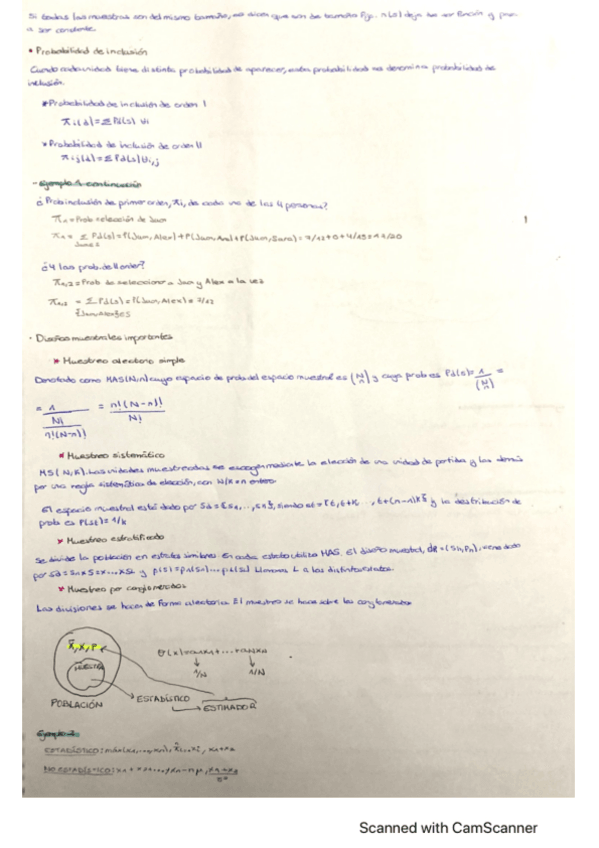 Si todas las muestras son del mismo tamaño, se dicen que son de tamaño fijo. n(s) deja de ser función y pasa
a ser constante.
• Probabilidad de inclusión
Cuando cada unidad tiene distinta probabilidad de aparecer, esta probabilidad se denomina probabilidad de
inclusión.
* Probabilidad de inclusión de orden I
πi(d)=Σ Pd(s) Ui
* Probabilidad de inclusión de orden II
πij(d)=Σ Pd(s)Ui,j
- Ejemplo 1 continuación
¿Prob inclusión de primer orden, πi, de cada una de las 4 personas?
π1 = Prob selección de Juan
1
π1 = Σ Pd(s)=P(Juan, Alex)+P(Juan, Ana)+P(Juan, Sara)=
¿Y las prob. de II orden?
π1,2 = Prob de seleccionar a Juan y Alex a la vez
π1,2 = Σ Pd(s)=P(Juan, Alex)=
· Diseños muestrales importantes
* Muestreo aleatorio simple
Denotado como MAS(N,n) cuyo espacio de prob del espacio muestral es (N n) y cuya prob es Pd(s)= 1 / (N n) =
= 1 / N! / n!(N-n)! = n!(N-n)! / N!
* Muestreo sistemático
MS(N,K). Las unidades muestreadas se escogen mediante la elección de una unidad de partida y las demás
por una regla sistemática de elección, con N/K = n entero.
El espacio muestral está dado por Sd={S1,..., SK}, siendo st={t, t+K, ..., t+(n-1)K} y la distribución de
prob es P(st)=1/K
* Muestreo estratificado
Se divide la población en estratos similares. En cada estrato utiliza MAS. El diseño muestral, viene dado
por Llamamos L a los distintos estratos.
* Muestreo por conglomerados
Las divisiones se hacen de forma aleatoria. El muestreo se hace sobre los conglomerados
MUESTRA
1/N 1/N
POBLACIÓN
ESTADÍSTICO
ESTIMADOR
Ejemplo 2
ESTADÍSTICO:
NO ESTADÍSTICO:
Scanned with CamScanner